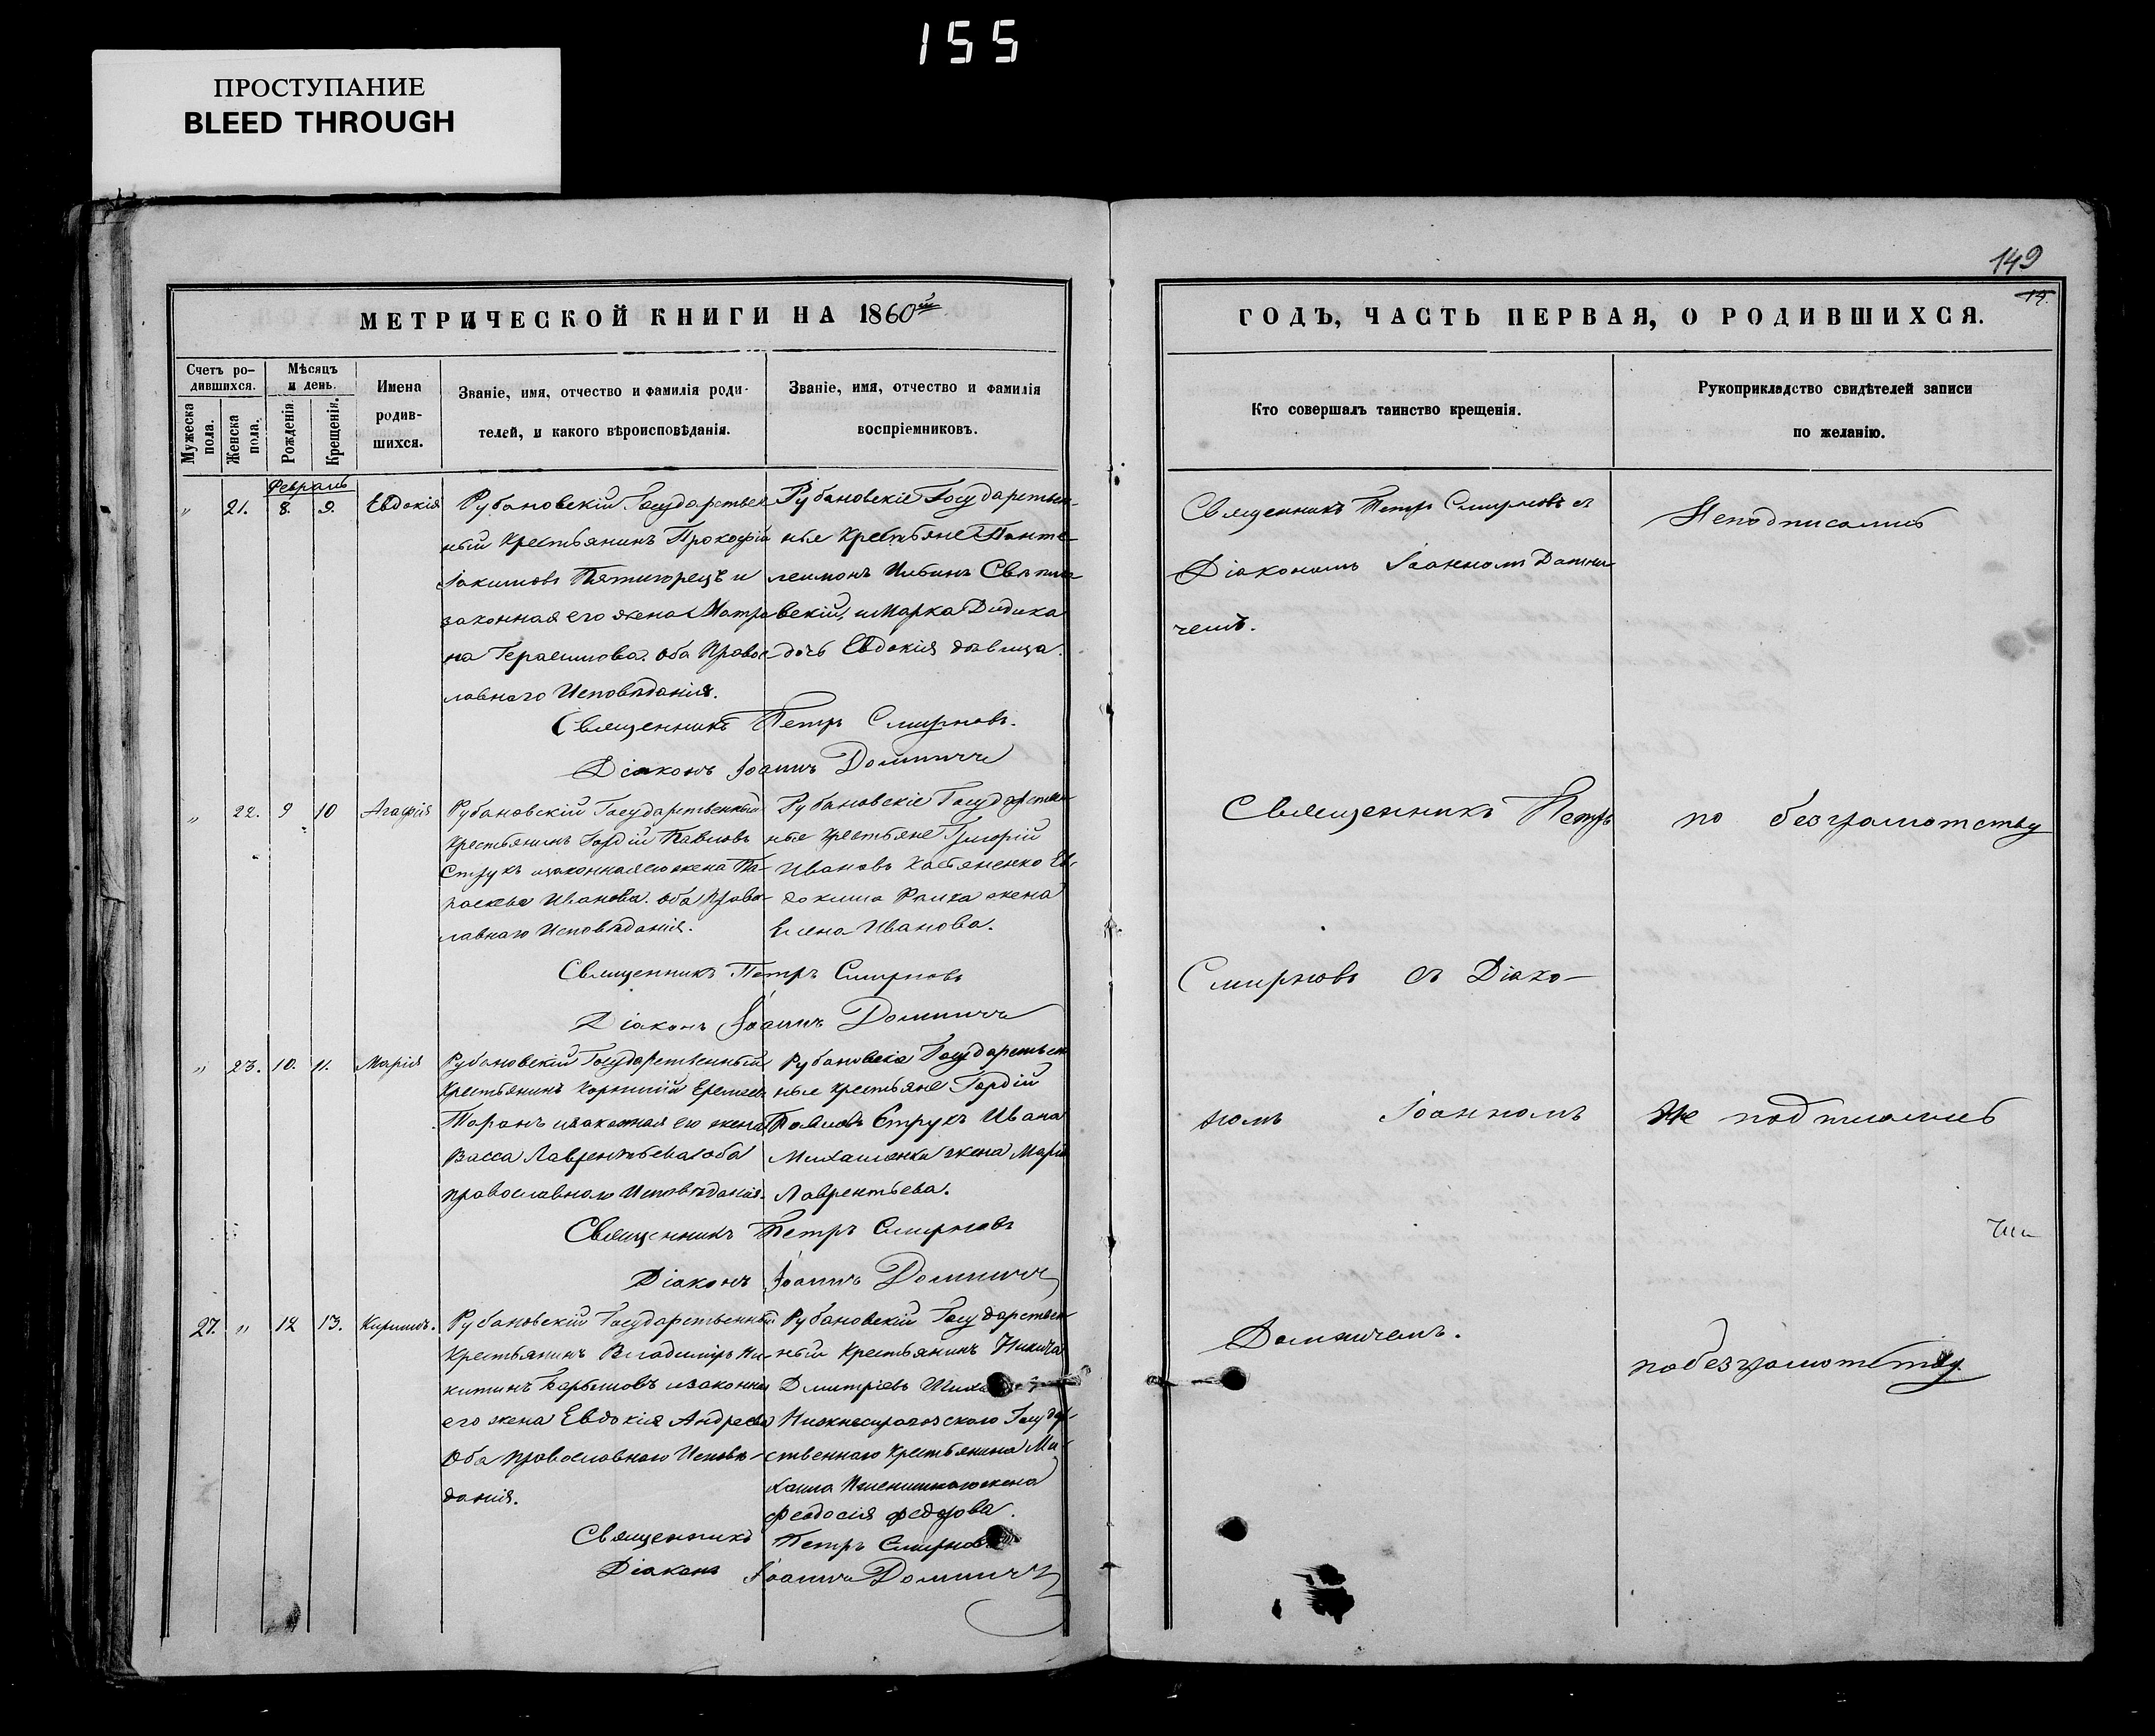 155
ПРОСТУПАНИЕ
BLEED THROUGH
МЕТРИЧЕСКОЙ КНИГИ НА 1860й
Счетъ родившихся.
Мѣсяцъ и день.
Мужеска пола.
Женска пола.
Рожденія.
Крещенія.
Имена родив-
шихся.
Званіе, имя, отчество и фамилія роди-
телей, и какого вѣроисповѣданія.
Званіе, имя, отчество и фамилія
воспріемниковъ.
Февраль
" 21. 8. 9. Евдокія
Рубановскій Государствен
ный Крестьянинъ Прокофій
Іакимовъ Пятигорецъ и
законная его жена Матро
на Герасимова. Оба Правос
лавнаго Исповѣданія.
Рубановскіе Государствен-
ные Крестьяне Панте-
леимонъ Ильинъ
и Марка Дидика
дочь Евдокія дѣвица.
Священникъ Петръ Смирновъ.
Діаконъ Іоаннъ
" 22. 9 10 Агафія
Рубановскій Государственный
Крестьянинъ Гордій Павловъ
Струкъ и законная его жена Па-
раскева Иванова. Оба Право-
лавнаго Исповѣданія.
Рубановскіе Государствен-
ные Крестьяне Григорій
Ивановъ Ев-
докима жена
Елена Иванова.
Священникъ Петръ Смирновъ
Діаконъ Іоаннъ
" 23. 10. 11. Марія
Рубановскій Государственный
Крестьянинъ
Таранъ и законная его жена
Васса Лаврентьева оба
православнаго Исповѣданія.
Рубановскіе Государствен
ные крестьяне Гордій
Павловъ Струкъ Ивана
жена Марія
Лаврентьева.
Священникъ Петръ Смирновъ
Діаконъ Іоаннъ
27. " 12 13. Кириллъ.
Рубановскій Государственный
Крестьянинъ Владиміръ Ни-
китинъ и законная
его жена Евдокія Андреева
Оба православнаго Исповѣ-
данія.
Рубановскій Государствен
ный Крестьянинъ Никита
Дмитріевъ
Государ-
ственнаго Крестьянина Ми-
хаила жена
Феодосія Федорова.
Священникъ Петръ Смирновъ
Діаконъ Іоаннъ
149
14.
ГОДЪ, ЧАСТЬ ПЕРВАЯ, О РОДИВШИХСЯ.
Кто совершалъ таинство крещенія.
Рукоприкладство свидѣтелей записи
по желанію.
Священникъ Петръ Смирновъ съ
Діакономъ Іоанномъ
чемъ.
Неподписались
Священникъ Петръ
по безграмотству
Смирновъ съ Діако-
номъ Іоанномъ
Не подписались
по безграмотству